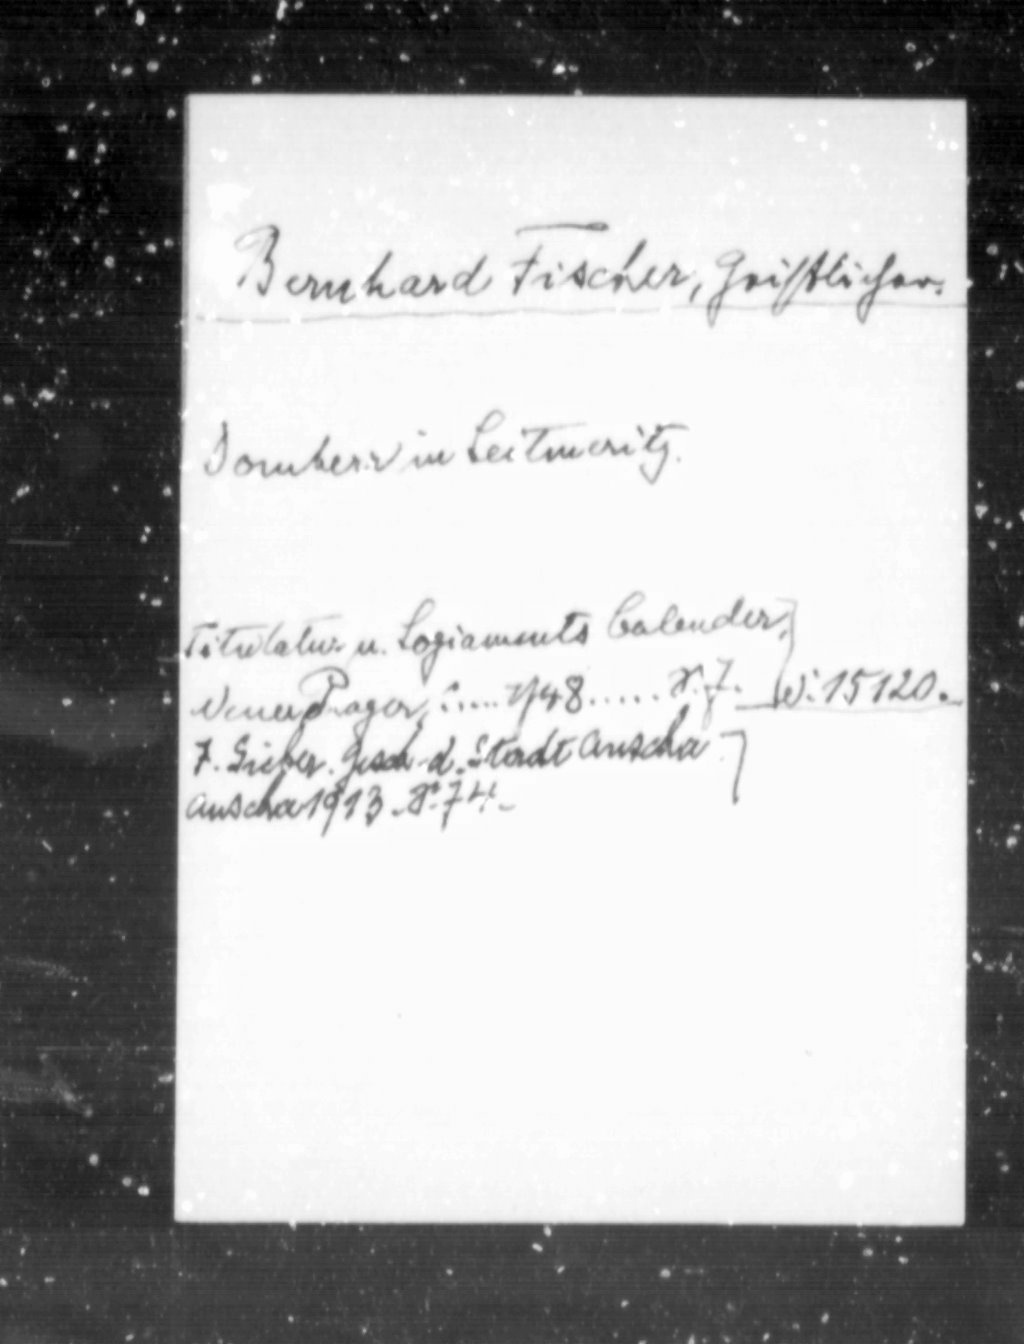 Bernhard Fischer, Geistlicher.
Domherr in Leitmeritz.
Titulatur u. Logiaments Calender,
Neuer Prager, :.... 1748..... S. 7. W. 15120.
Gesch. d. Stadt Auscha
Auscha 1913. S. 74.